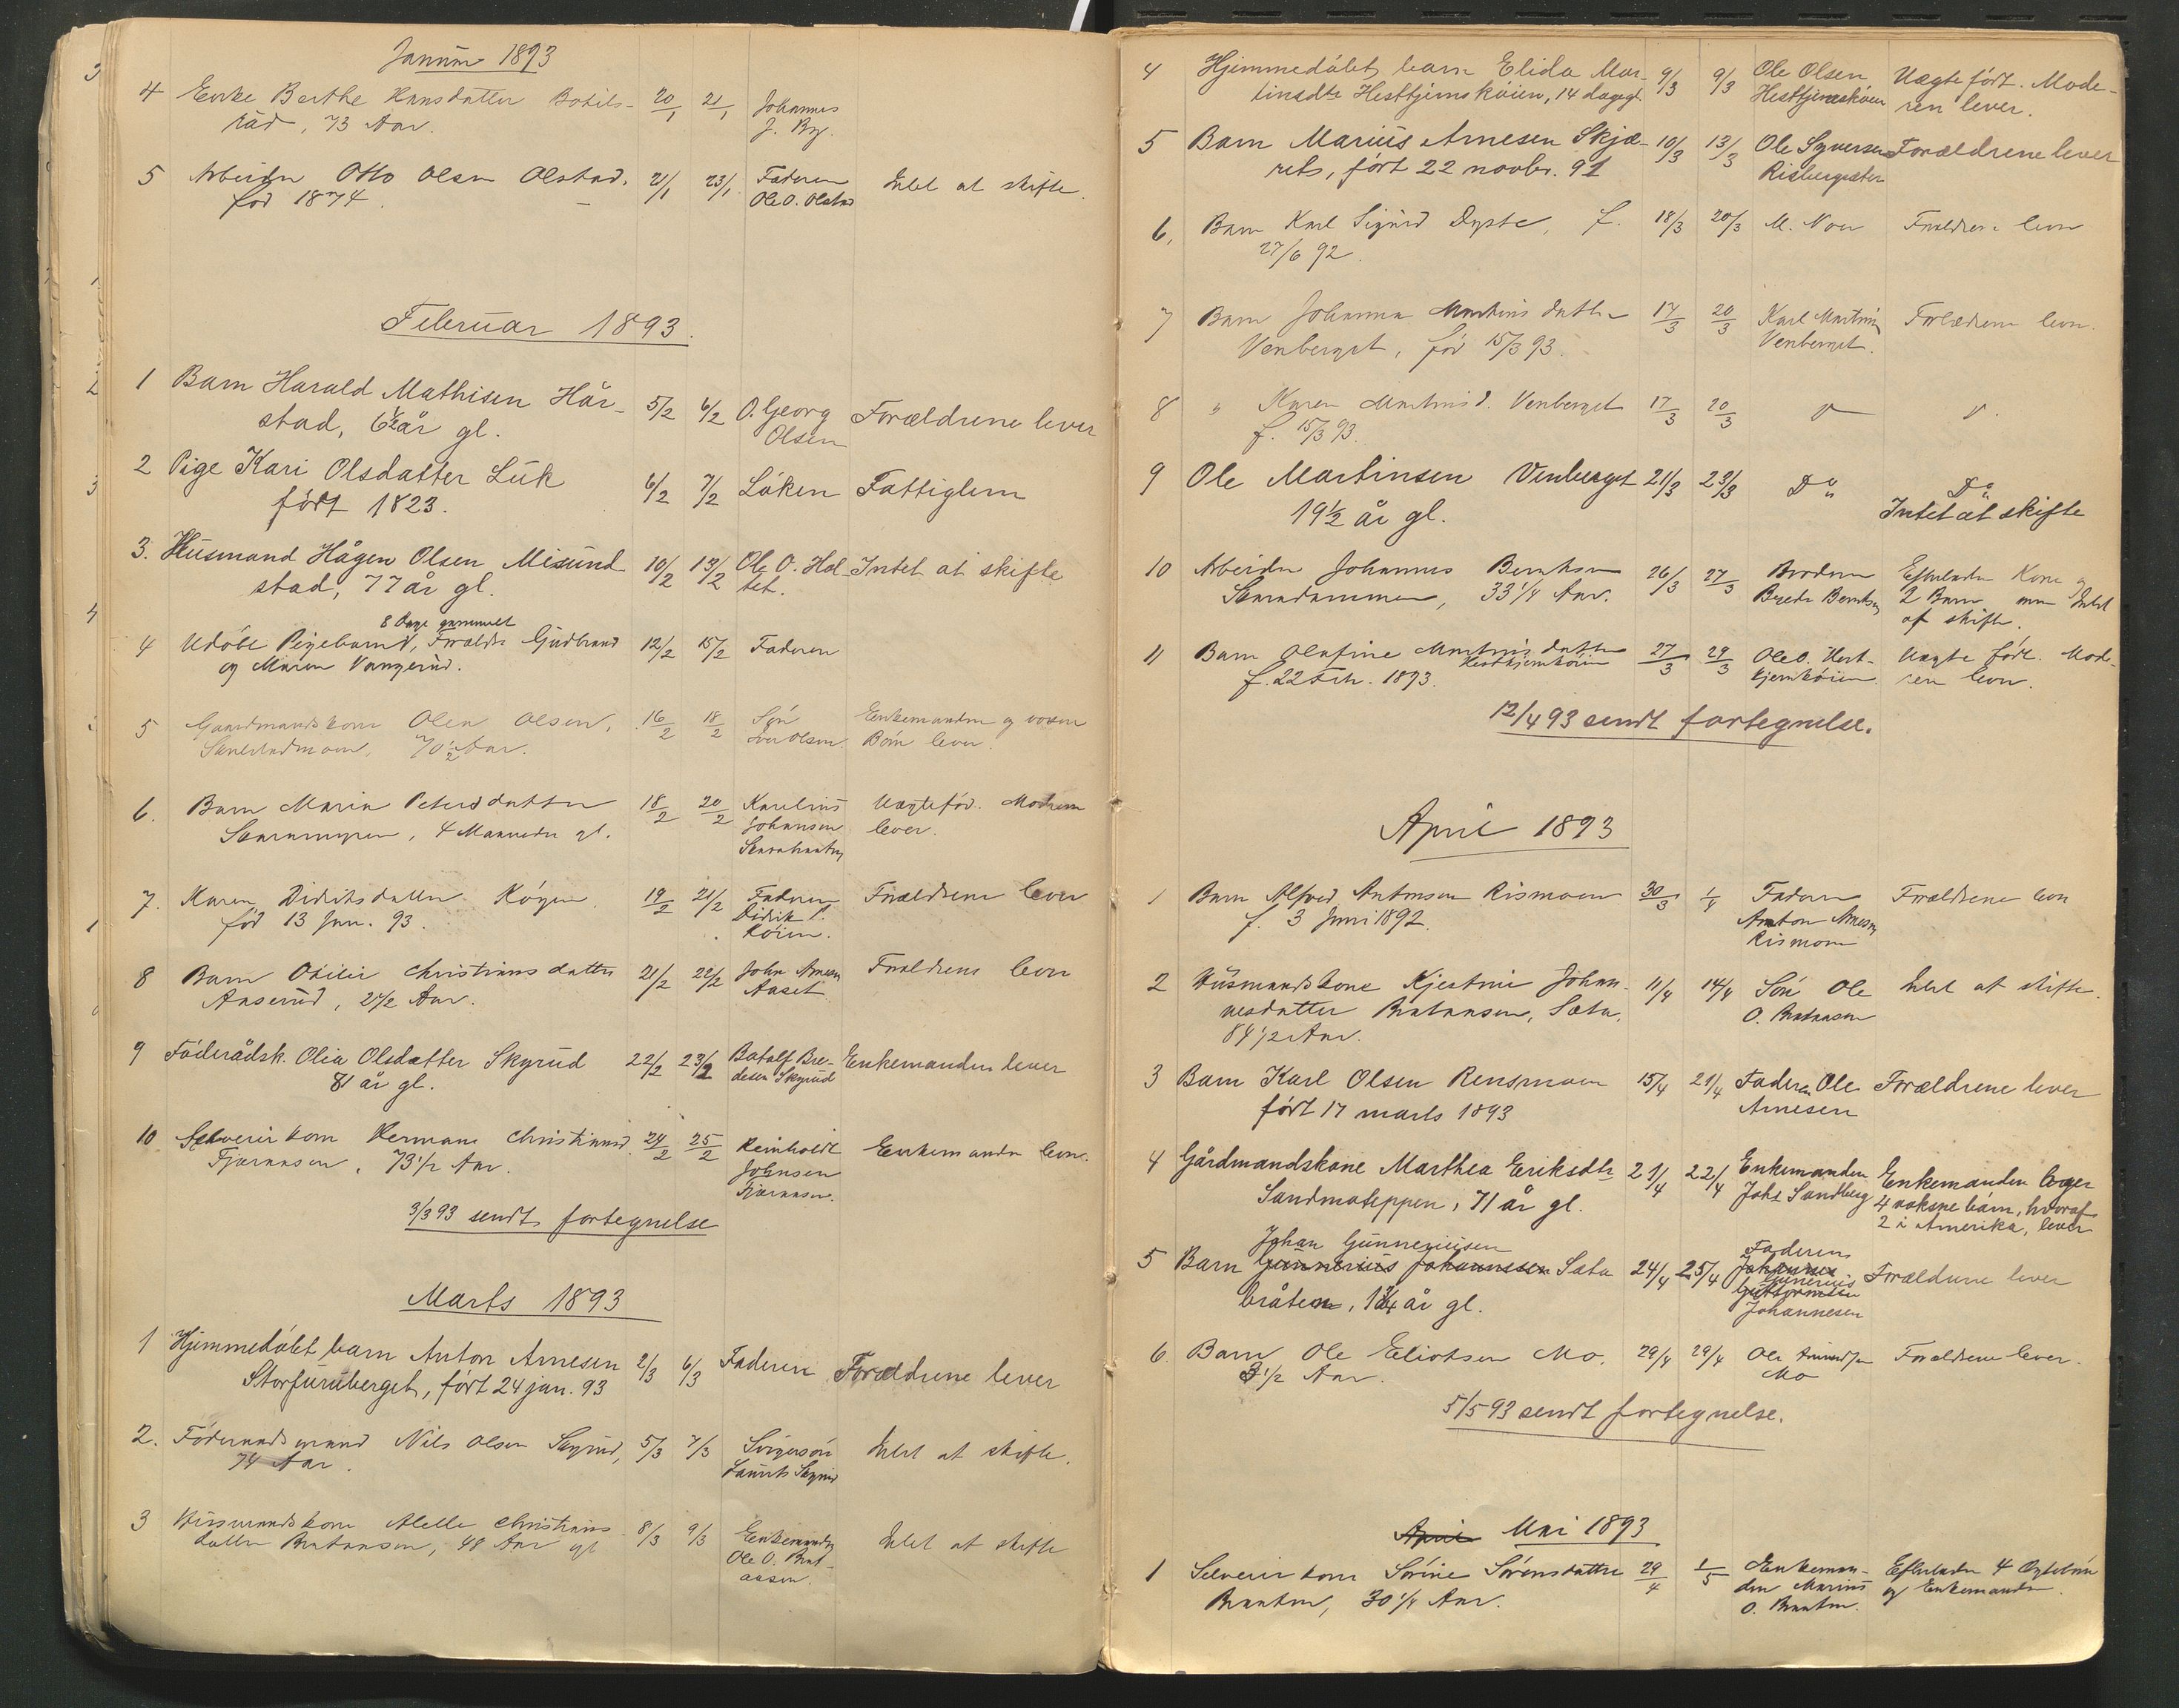 Januar 1893
4 Enke Berthe Hansdatter Botils- 20/1 21/1 Johannes
rud, 73 Aar. J. By.
5 Arbeider Otto Olsen Olstad. 21/1 23/1 Faderen Intet at skifte.
fød 1874. Ole O. Olstad
Februar 1893.
1 Barn Harald Mathisen Hår- 5/2 6/2 O. Georg Forældrene lever
stad, 6½ år gl. Olsen
2 Pige Kari Olsdatter Luk 6/2 7/2 Löken Fattiglem
født 1823.
3. Husmand Hågen Olsen Misund 10/2 13/2 Ole O. Hol- Intet at skifte
stad, 77 år gl. tet.
8 Dage gammelt
4 Udøbt Pigebarn, Forældre Gudbrand 12/2 15/2 Faderen
og Maren Vangerud.
5 Gaardmandskone Olea Olsen, 16/2 18/2 Søn Enkemanden og voxne
70½ Aar. Iver Olsen. Børn lever.
6. Barn Maria Petersdatter 18/2 20/2 Karelius Uægtefød. Moderen
4 Maaneder gl. Johansen lever.
7. Karen Didriksdatter Køyen 19/2 21/2 Faderen Forældrene lever
fød 13 Jan. 93. Didrik
Köien.
8 Barn Otilie Christiansdatter 21/2 22/2 John Arnesen Forældrene lever
Aaserud, 2½ Aar. Aaset
9 Föderådsk. Olia Olsdatter Skyrud 22/2 23/2 Botolf Bre- Enkemanden lever
81 år gl. desen Skyrud
10 Selveierkone Hermana Christiansd. 24/2 25/2 Reinholdt Enkemanden lever.
Fjøraasen, 73½ Aar. Johnsen
Fjøraasen.
3/3 93 sendt fortegnelse
Marts 1893
1 Hjemmedöbt barn Anton Arnesen 2/3 6/3 Faderen Forældrene lever
Storfuruberget, födt 24 jan. 93
2. Föderaadsmand Nils Olsen Skyrud, 5/3 7/3 Svigersön Intet at skifte.
74 Aar. Laurits Skyrud
3 Husmandskone Alette Christians- 8/3 9/3 Enkemanden Intet at skifte
datter Brataasen, 48 Aar gl Ole O. Brat-
aasen.
4 Hjemmedöbt barn Elida Mar- 9/3 9/3 Ole Olsen Uægte födt. Mode-
tinsdtr Hesttjernsköien, 14 dage gl. Hesttjernsköien ren lever.
5 Barn Marius Arnesen Skjæ- 10/3 13/3 Ole Syversen Forældrene lever
rets, födt 22 novbr. 91 Risbergsæter
6, Barn Karl Sigurd Dyste, f. 18/3 20/3 M. Noer Forældrene lever
27/6 92.
7 Barn Johanna Martinsdatter 17/3 20/3 Karl Martinsen Forældrene lever.
Venberget, fød 15/3 93. Venberget.
8 " Karen Martinsd. Venberget 17/3 20/3
f. 15/3 93.
9 Ole Martinsen Venberget 21/3 23/3 Do Do
19½ år gl. Intet at skifte
10 Arbeider Johannes Berntsen 26/3 27/3 Broderen Efterlader Kone og
33¼ Aar. Berntsen 2 Barn, men Intet
at skifte.
11 Barn Olafine Martinsdatter 27/3 29/3 Ole O. Hest- Uægte født. Mode-
Hesttjernköien
f. 22 Feb. 1893. tjernköien. ren lever.
12/4 93 sendt fortegnelse.
April 1893
1 Barn Alfred Antonsen Rismoen 30/3 1/4 Faderen Forældrene lever
f. 3 Juni 1892. Anton Arnesen
Rismoen
2 Husmandskone Kjestine Johan- 11/4 14/4 Sön Ole Intet at skifte.
nesdatter Brataasen, Sæter, O. Brataasen
84½ Aar.
3 Barn Karl Olsen Rensmoen 15/4 21/4 Faderen Ole Forældrene lever
födt 17 marts 1893 Arnesen
4 Gårdmandskone Marthea Eriksdtr 21/4 22/4 Enkemanden Enkemanden og
Sandmoteppen, 71 år gl. Johs Sandberg 4 voksne börn, hvoraf
2 i Amerika, lever
Johan Gunneriusen Faderen
5 Barn Gunnerius Johannessen Sæta 24/4 25/4 Johannes Forældrene lever
bråten, 1¾ år gl. Gunerius
Guttormsen
Johannesen
6. Barn Ole Eliotsen Mo. 29/4 29/4 Ole Amundsen Forældrene lever.
3½ Aar. Mo
5/5 93 sendt fortegnelse.
April Mai 1893
1 Selveierkone Sörine Sörensdatter 29/4 1/5 Enkeman- Efterlader 4
Braaten, 30¼ Aar. den Marius og Enkemanden.
O. Braaten.